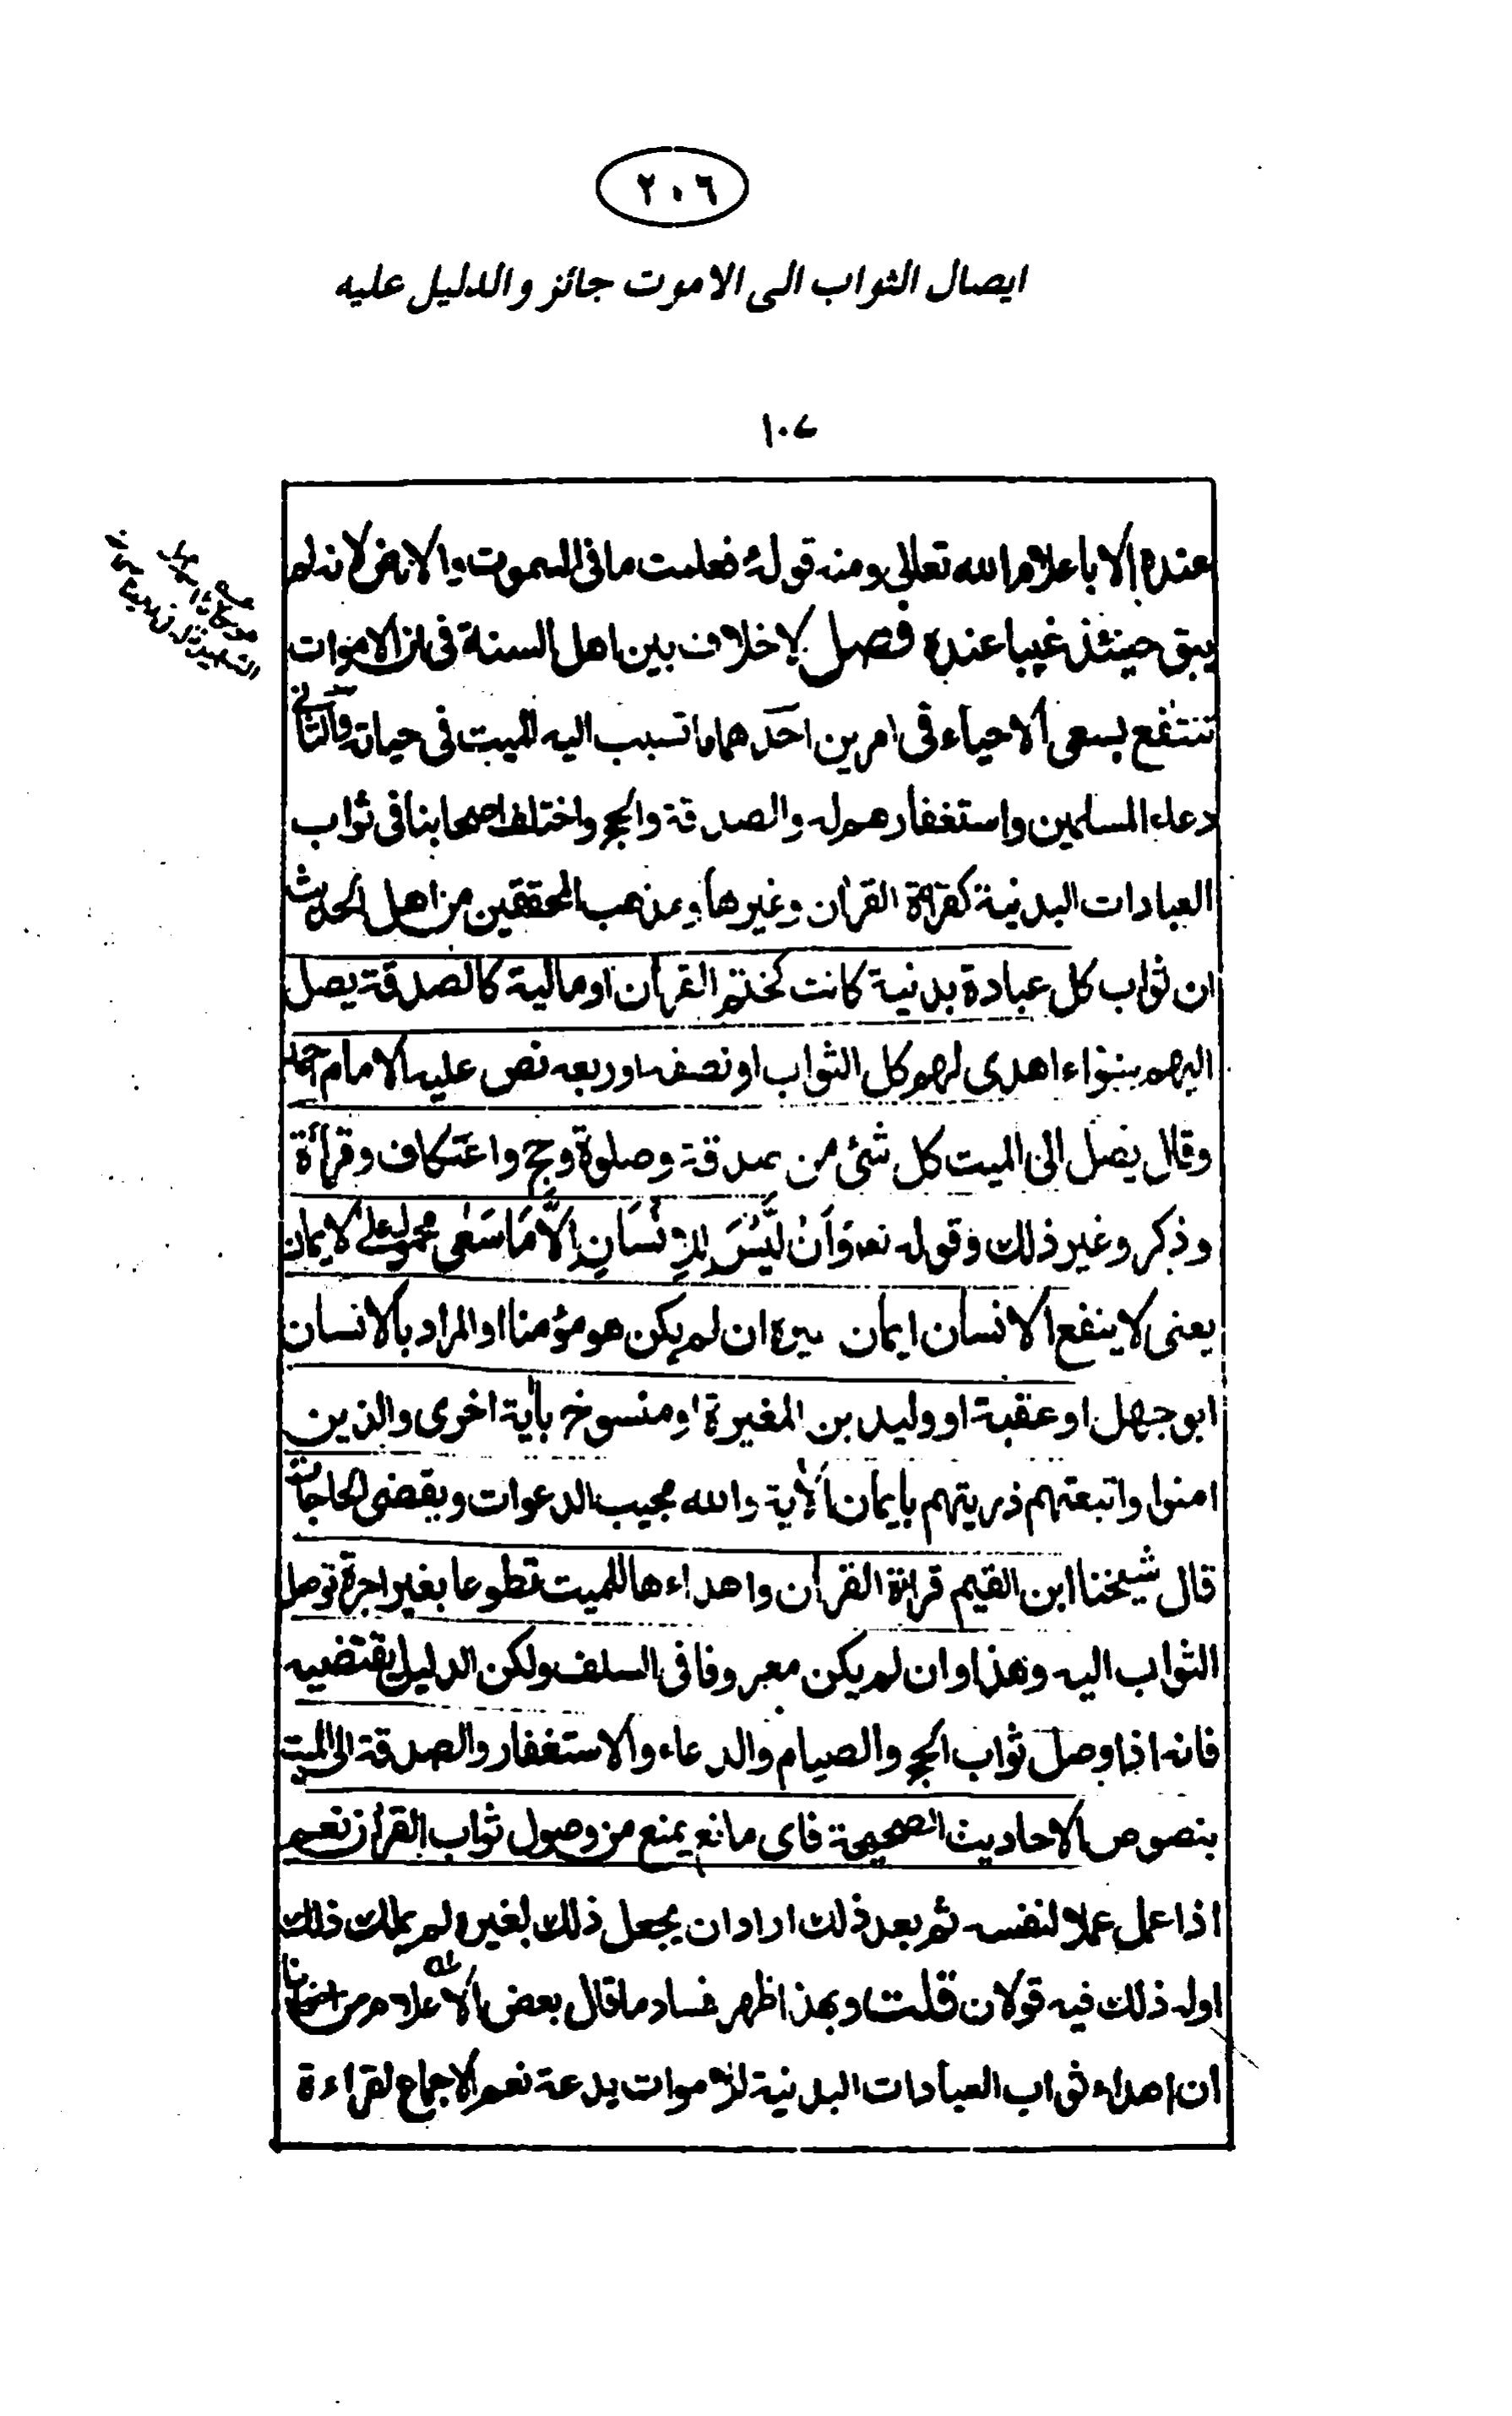 ٢٠٦
ايصال الثواب الى الاموت جائز والدليل عليه
١٠٧
عنده الا باعلام الله تعالى ومنه قوله فعلمت ما فى السموت والارض لانه لم
يبق حينئذ غيبا عنده فصل لا خلاف بين اهل السنة فى ان الاموات
تنتفع بسعى الاحياء فى امرين احدهما ما تسبب اليه الميت فى حياته والثانى
دعاء المسلمين واستغفارهم له والصدقة والحج واختلف اصحابنا فى ثواب
العبادات البدنية كقراءة القران وغيرها ومذهب المحققين من اهل الحديث
ان ثواب كل عبادة بدنية كانت كختم القرآن او مالية كالصدقة يصل
اليهم سواء اهدى لهم كل الثواب او نصفه او ربعه نص عليه الامام احمد
وقال يصل الى الميت كل شئ من صدقة وصلوة وحج واعتكاف وقرأة
وذكر وغير ذلك وقوله تعه وَاَنْ لَّيْسَ لِلْاِنْسَانِ اِلَّا مَا سَعٰى محمول على الايمان
يعنى لا ينفع الانسان ايمان غيره ان لم يكن هو مؤمنا او المراد بالانسان
ابو جهل او عقبة او وليد بن المغيرة او منسوخ بأية اخرى والذين
امنوا واتبعتهم ذريتهم بايمان الأية والله مجيب الدعوات ويقضى الحاجات
قال شيخنا ابن القيم قراءة القرآن واهداءها للميت تطوعا بغير اجرة توصل
الثواب اليه وهذا وان لم يكن معروفا فى السلف ولكن الدليل يقتضيه
فانه اذا وصل ثواب الحج والصيام والدعاء والاستغفار والصدقة الى الميت
بنصوص الاحاديث الصحيحة فاى مانع يمنع من وصول ثواب القرآن نعم
اذا عمل عملا لنفسه ثم بعد ذلك اراد ان يجعل ذلك لغيره لم يملك ذلك
اوله ذلك فيه قولان قلت وبهذا ظهر فساد ما قال بعض الاعلام من اصحابنا
ان اهداء ثواب العبادات البدنية للاموات بدعة نعم الاجماع لقراءة